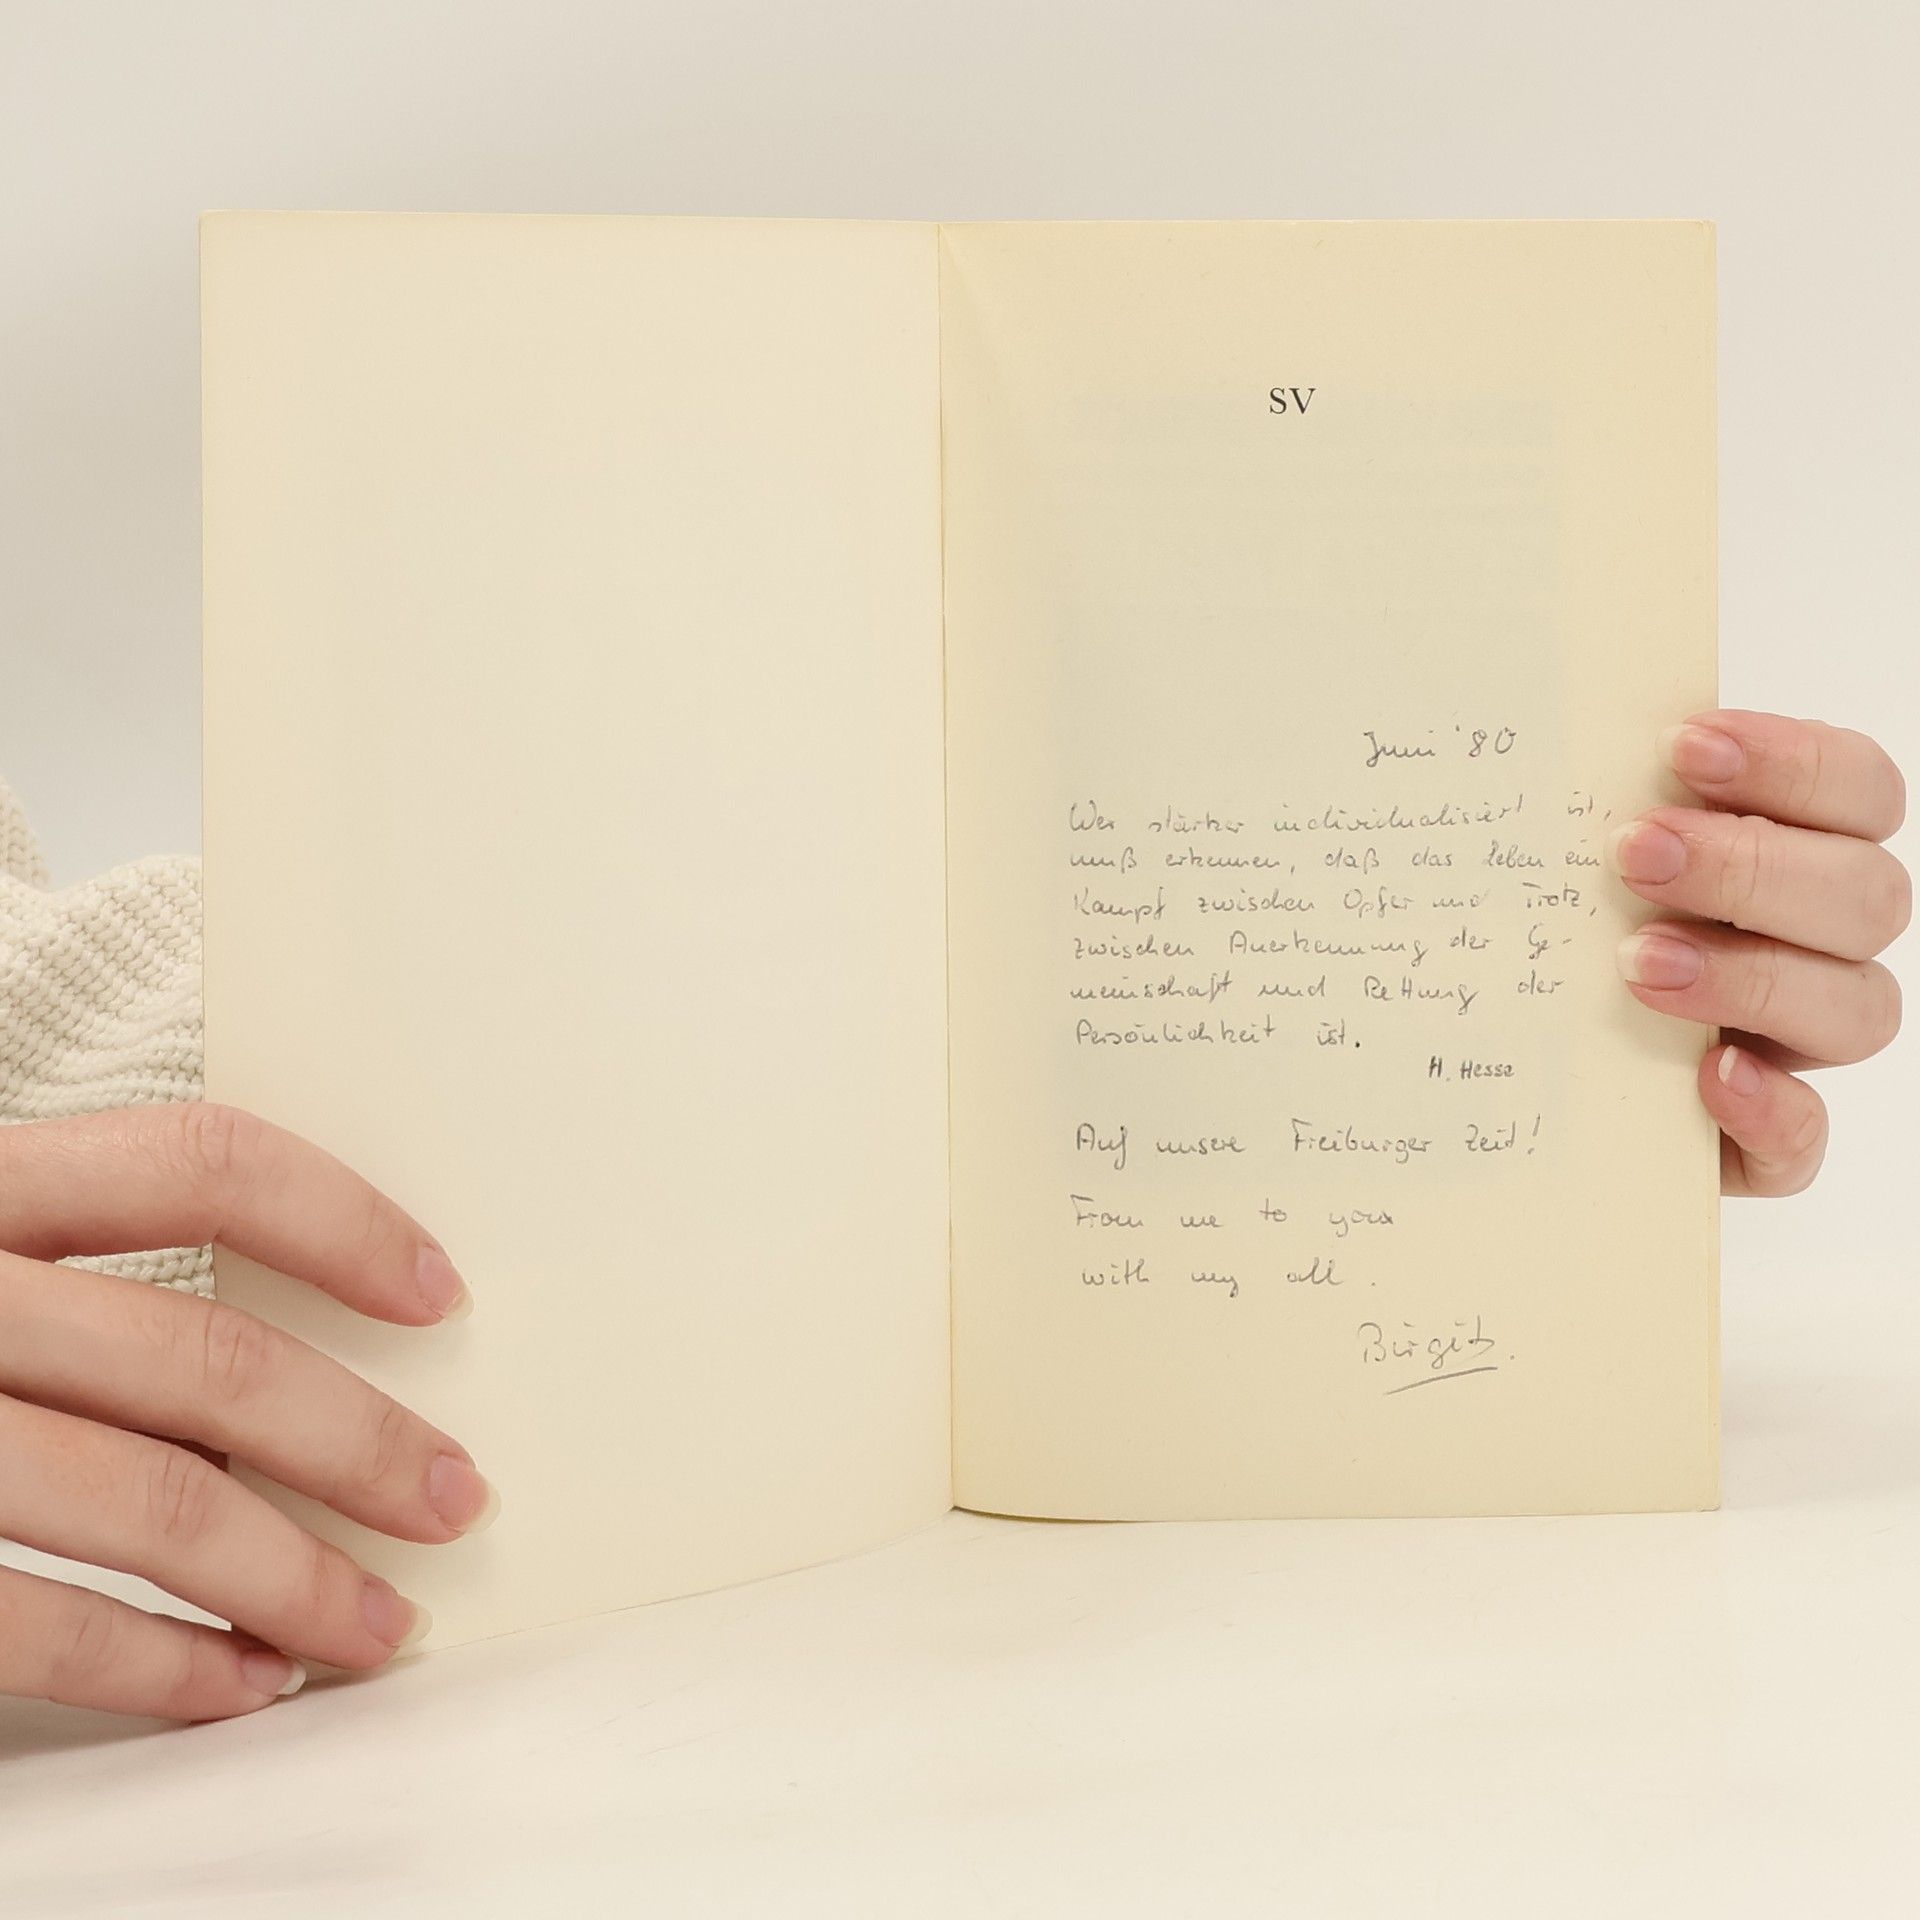 SV
Juni '80
Wer stärker individualisiert ist,
muß erkennen, daß das Leben ein
Kampf zwischen Opfer und Trotz,
zwischen Anerkennung der Ge-
meinschaft und Rettung der
Persönlichkeit ist.
H. Hesse
Auf unsere Freiburger Zeit!
From me to you
with my all.
Birgit.